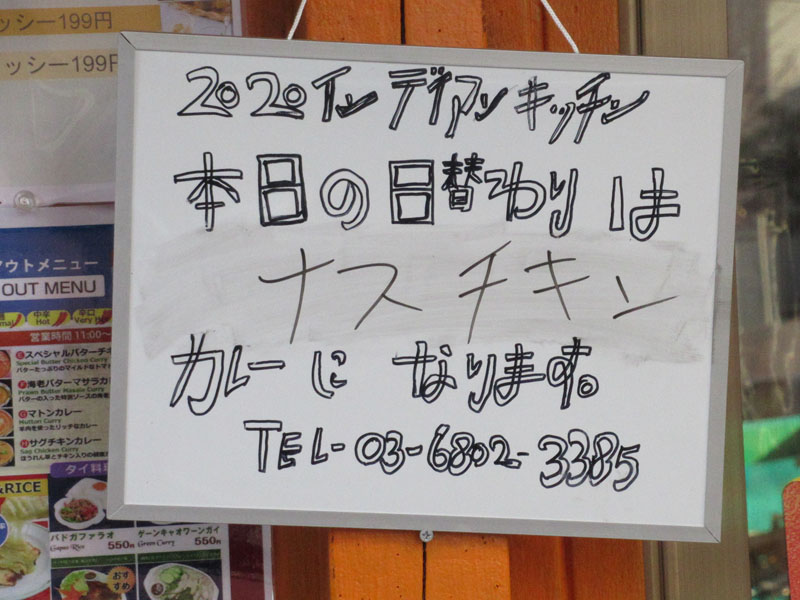 ッシー199円
ッシー199円
2020インディアンキッチン
本日の日替わりは
ナスチキン
カレーに なります。
TEL-03-6802-3385
アウトメニュー
OUT MENU
中辛 Hot
辛口
営業時間 11:00~
スペシャルバターチキ
Special Butter Chicken Curry
バターたっぷりのマイルドなトマ
海老バターマサラカ
Prawn Butter Masala Curry
マトンカレー
Mutton Curry
羊肉を使ったリッチなカレー
サグチキンカレー
Sag Chicken Curry
ほうれん草とチキン入りの健康
タイ料
&RICE
パドガファラオ
Gapao Rice 550円
ゲーンキャオワーンガイ
Green Curry 550円
おすすめ